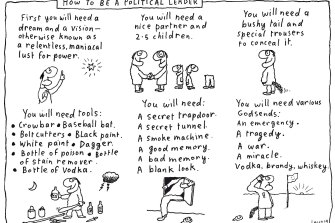 HOW TO BE A POLITICAL LEADER
First you will need a
dream and a vision—
otherwise known as
a relentless, maniacal
lust for power.
You will need a
nice partner and
2.5 children.
You will need a
bushy tail and
special trousers
to conceal it.
You will need tools:
• Crowbar • Baseball bat.
• Boltcutters • Black paint.
• White paint • Dagger.
• Bottle of poison • Bottle
of stain remover.
• Bottle of Vodka.
You will need:
A secret trapdoor.
A secret tunnel.
A smoke machine.
A good memory.
A bad memory.
A blank look.
You will need various
Godsends:
An emergency.
A tragedy.
A war.
A miracle.
Vodka, brandy, whiskey.